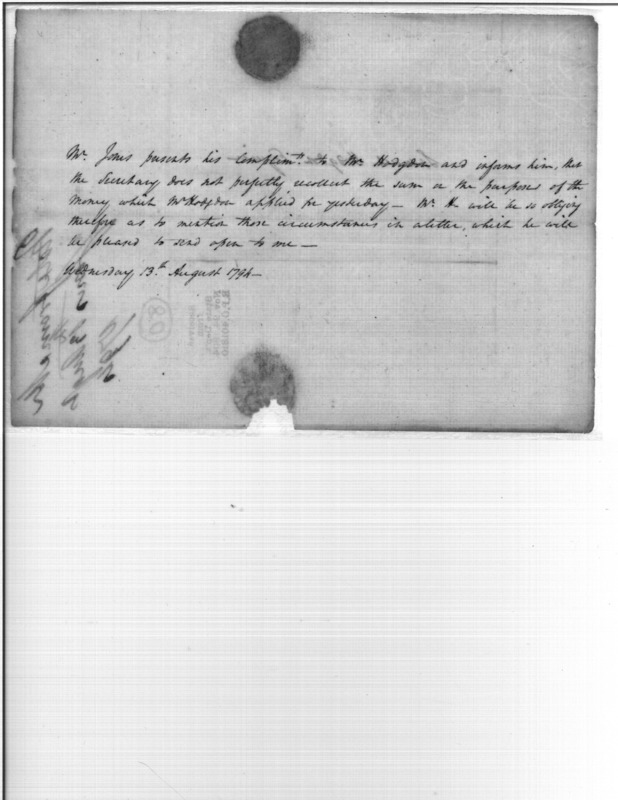 Mr. Jones presents his complimts. to Mr. Hodgdon and informs him, that
the Secretary does not perfectly recollect the sum or the purposes of the
money which Mr Hodgdon applied for yesterday — Mr. H. will be so obliging
therefore as to mention those circumstances in a letter, which he will
be pleased to send open to me —
Wednesday 13th. August 1794 —